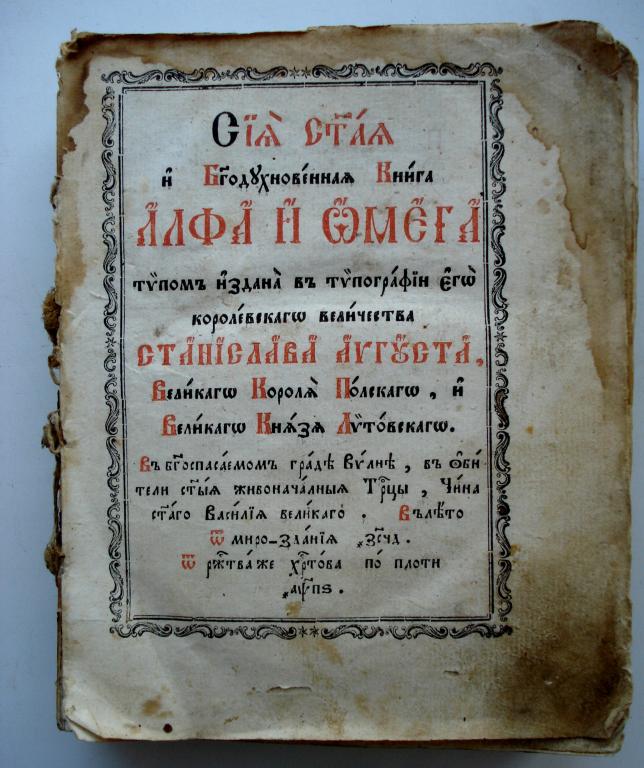 Сїѧ̀ Ст҃а́ѧ
и҆ Бг҃одꙋхнове́ннаѧ Кни́га
А҆́ЛФА И҆ Ѡ҆МЕ́ГА
тѵ́помъ и҆́здана̀ въ тѵпогра́фїи є҆гѡ̀
короле́вскагѡ вели́чества
СТАНІСЛА́ВА А҆́ѴГꙊСТА,
Вели́кагѡ Королѧ̀ По́лскагѡ, и҆
Вели́кагѡ Кнѧ́зѧ Лѵто́вскагѡ.
Въ бг҃оспаса́емом гра́дѣ Ви́лнѣ, въ ѻ҆би́
тели ст҃ы́ѧ живонача́лныѧ Трⷪ҇цы, Чи́на
ст҃а́го Васи́лїѧ вели́каго̀. Въ лѣ́то
ѿ миро-зда́нїѧ ҂зс҃чд.
Ѿ ржⷭ҇тва́же хрⷭ҇то́ва по́ плоти
҂аѱ҃пѕ.